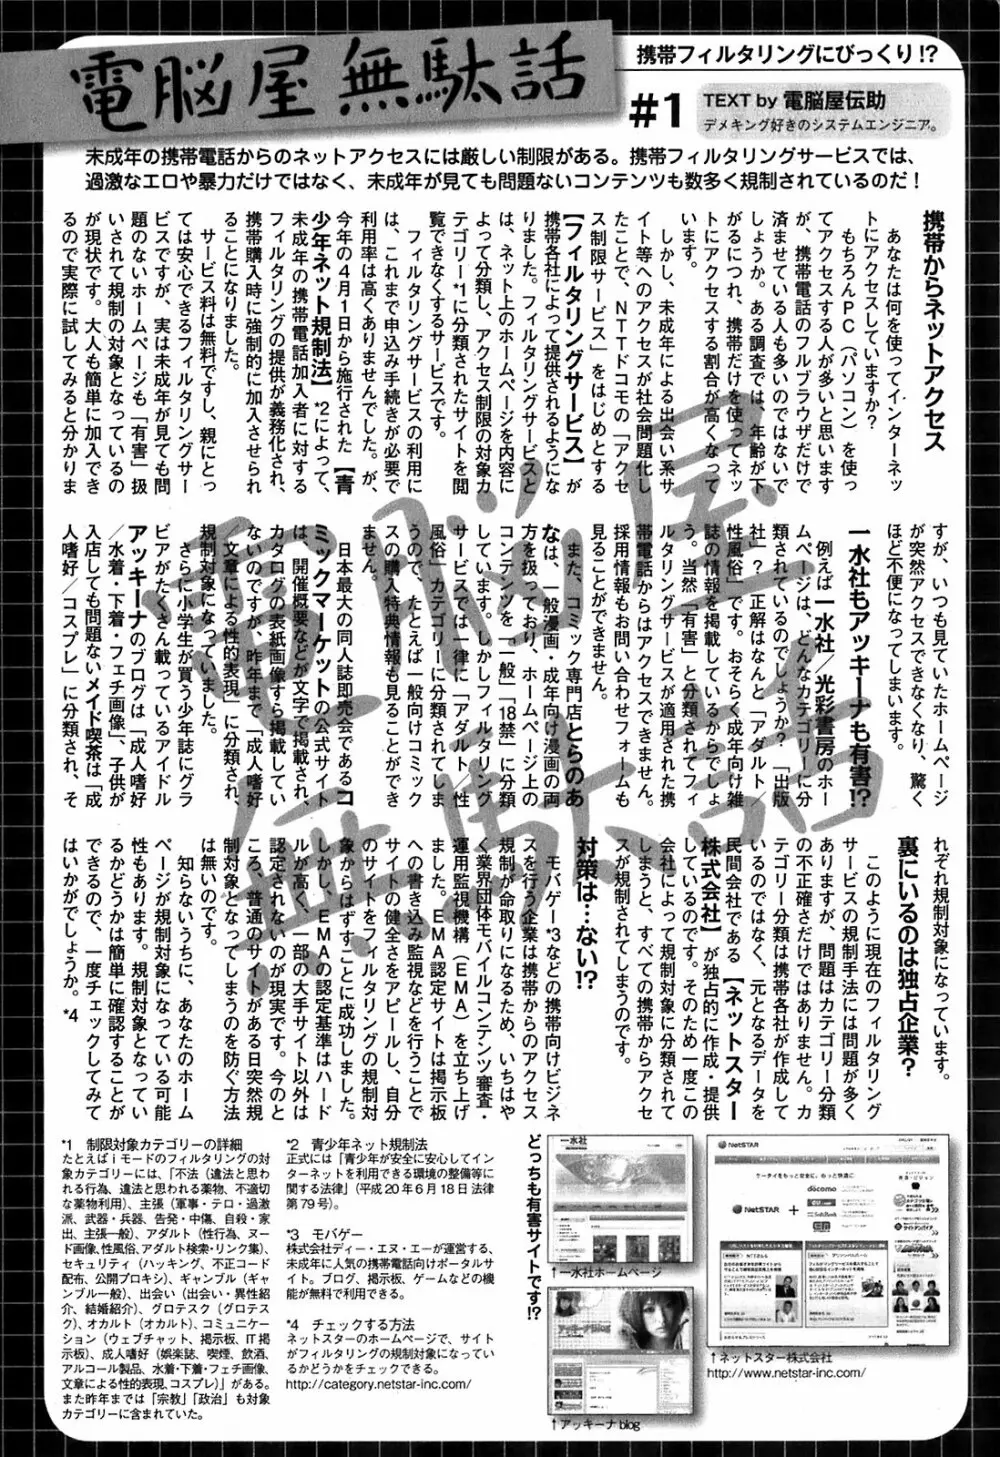 電脳屋無駄話
携帯フィルタリングにびっくり!?
#1
TEXT by 電脳屋伝助
デメキング好きのシステムエンジニア。
未成年の携帯電話からのネットアクセスには厳しい制限がある。携帯フィルタリングサービスでは、
過激なエロや暴力だけではなく、未成年が見ても問題ないコンテンツも数多く規制されているのだ！
携帯からネットアクセス
あなたは何を使ってインターネッ
トにアクセスしていますか？
もちろんPC（パソコン）を使っ
てアクセスする人が多いと思います
が、携帯電話のフルブラウザだけで
済ませている人も多いのではないで
しょうか。ある調査では、年齢が下
がるにつれ、携帯だけを使ってネッ
トにアクセスする割合が高くなって
います。
しかし、未成年による出会い系サ
イト等へのアクセスが社会問題化し
たことで、NTTドコモの「アクセ
ス制限サービス」をはじめとする
【フィルタリングサービス】が
携帯各社によって提供されるようにな
りました。フィルタリングサービスと
は、ネット上のホームページを内容に
よって分類し、アクセス制限の対象カ
テゴリー*1に分類されたサイトを閲
覧できなくするサービスです。
フィルタリングサービスの利用に
は、これまで申込み手続きが必要で
利用率は高くありませんでした。が、
今年の4月1日から施行された【青
少年ネット規制法】*2によって、
未成年の携帯電話加入者に対する
フィルタリングの提供が義務化され、
携帯購入時に強制的に加入させられ
ることになりました。
サービス料は無料ですし、親にとっ
ては安心できるフィルタリングサー
ビスですが、実は未成年が見ても問
題のないホームページも「有害」扱
いされて規制の対象となっているの
が現状です。大人も簡単に加入でき
るので実際に試してみると分かりま
すが、いつも見ていたホームページ
が突然アクセスできなくなり、驚く
ほど不便になってしまいます。
一水社もアッキーナも有害!?
例えば一水社／光彩書房のホー
ムページは、どんなカテゴリーに分
類されているのでしょうか？「出版
社」？正解はなんと「アダルト／
性風俗」です。おそらく成年向け雑
誌の情報を掲載しているからでしょ
う。当然「有害」と分類されてフィ
ルタリングサービスが適用された携
帯電話からはアクセスできません。
採用情報もお問い合わせフォームも
見ることができません。
また、コミック専門店とらのあ
なは、一般漫画・成年向け漫画の両
方を扱っており、ホームページ上の
コンテンツを「一般」「18禁」に分類
しています。しかしフィルタリング
サービスでは一律に「アダルト／性
風俗」カテゴリーに分類されてしま
うので、たとえば一般向けコミック
スの購入特典情報も見ることができ
ません。
日本最大の同人誌即売会であるコ
ミックマーケットの公式サイト
は、開催概要などが文字で掲載され、
カタログの表紙画像すら掲載してい
ないのですが、昨年まで「成人嗜好
／文章による性的表現」に分類され、
規制対象になっていました。
さらに小学生が買う少年誌にグラ
ビアがたくさん載っているアイドル
アッキーナのブログは「成人嗜好
／水着・下着・フェチ画像」、子供が
入店しても問題ないメイド喫茶は「成
人嗜好／コスプレ」に分類され、そ
れぞれ規制対象になっています。
裏にいるのは独占企業？
このように現在のフィルタリング
サービスの規制手法には問題が多く
ありますが、問題はカテゴリー分類
の不正確さだけではありません。カ
テゴリー分類は携帯各社が作成して
いるのではなく、元となるデータを
民間会社である【ネットスター
株式会社】が独占的に作成・提供
しているのです。そのため一度この
会社によって規制対象に分類されて
しまうと、すべての携帯からアクセ
スが規制されてしまうのです。
対策は…ない!?
モバゲー*3などの携帯向けビジネ
スを行う企業は携帯からのアクセス
規制が命取りになるため、いちはや
く業界団体モバイルコンテンツ審査・
運用監視機構（EMA）を立ち上げ
ました。EMA認定サイトは掲示板
への書き込み監視などを行うことで
サイトの健全さをアピールし、自分
のサイトをフィルタリングの規制対
象からはずすことに成功しました。
しかし、EMAの認定基準はハード
ルが高く、一部の大手サイト以外は
認定されないのが現実です。今のと
ころ、普通のサイトがある日突然規
制対象となってしまうのを防ぐ方法
は無いのです。
知らないうちに、あなたのホーム
ページが規制対象になっている可能
性もあります。規制対象となってい
るかどうかは簡単に確認することが
できるので、一度チェックしてみて
はいかがでしょうか。*4
*1 制限対象カテゴリーの詳細
たとえばｉモードのフィルタリングの対
象カテゴリーには、「不法（違法と思わ
れる行為、違法と思われる薬物、不適切
な薬物利用)、主張（軍事・テロ・過激
派、武器・兵器、告発・中傷、自殺・家
出、主張一般)、アダルト（性行為、ヌー
ド画像、性風俗、アダルト検索・リンク集)、
セキュリティ（ハッキング、不正コード
配布、公開プロキシ)、ギャンブル（ギャ
ンブル一般)、出会い（出会い・異性紹
介、結婚紹介)、グロテスク（グロテス
ク)、オカルト（オカルト)、コミュニケー
ション（ウェブチャット、掲示板、IT掲
示板)、成人嗜好（娯楽誌、喫煙、飲酒、
アルコール製品、水着・下着・フェチ画像、
文章による性的表現、コスプレ)」がある。
また昨年までは「宗教」「政治」も対象
カテゴリーに含まれていた。
*2 青少年ネット規制法
正式には「青少年が安全に安心してイン
ターネットを利用できる環境の整備等に
関する法律」（平成20年6月18日法律
第79号)。
*3 モバゲー
株式会社ディー・エヌ・エーが運営する、
未成年に人気の携帯電話向けポータルサ
イト。ブログ、掲示板、ゲームなどの機
能が無料で利用できる。
*4 チェックする方法
ネットスターのホームページで、サイト
がフィルタリングの規制対象になってい
るかどうかをチェックできる。
http://category.netstar-inc.com/
どっちも有害サイトです!?
一水社
↑一水社ホームページ
↑アッキーナblog
NetSTAR
ケータイをもっと安全に、もっと快適に
docomo
NetSTAR
↑ネットスター株式会社
http://www.netstar-inc.com/
電脳屋
無駄話